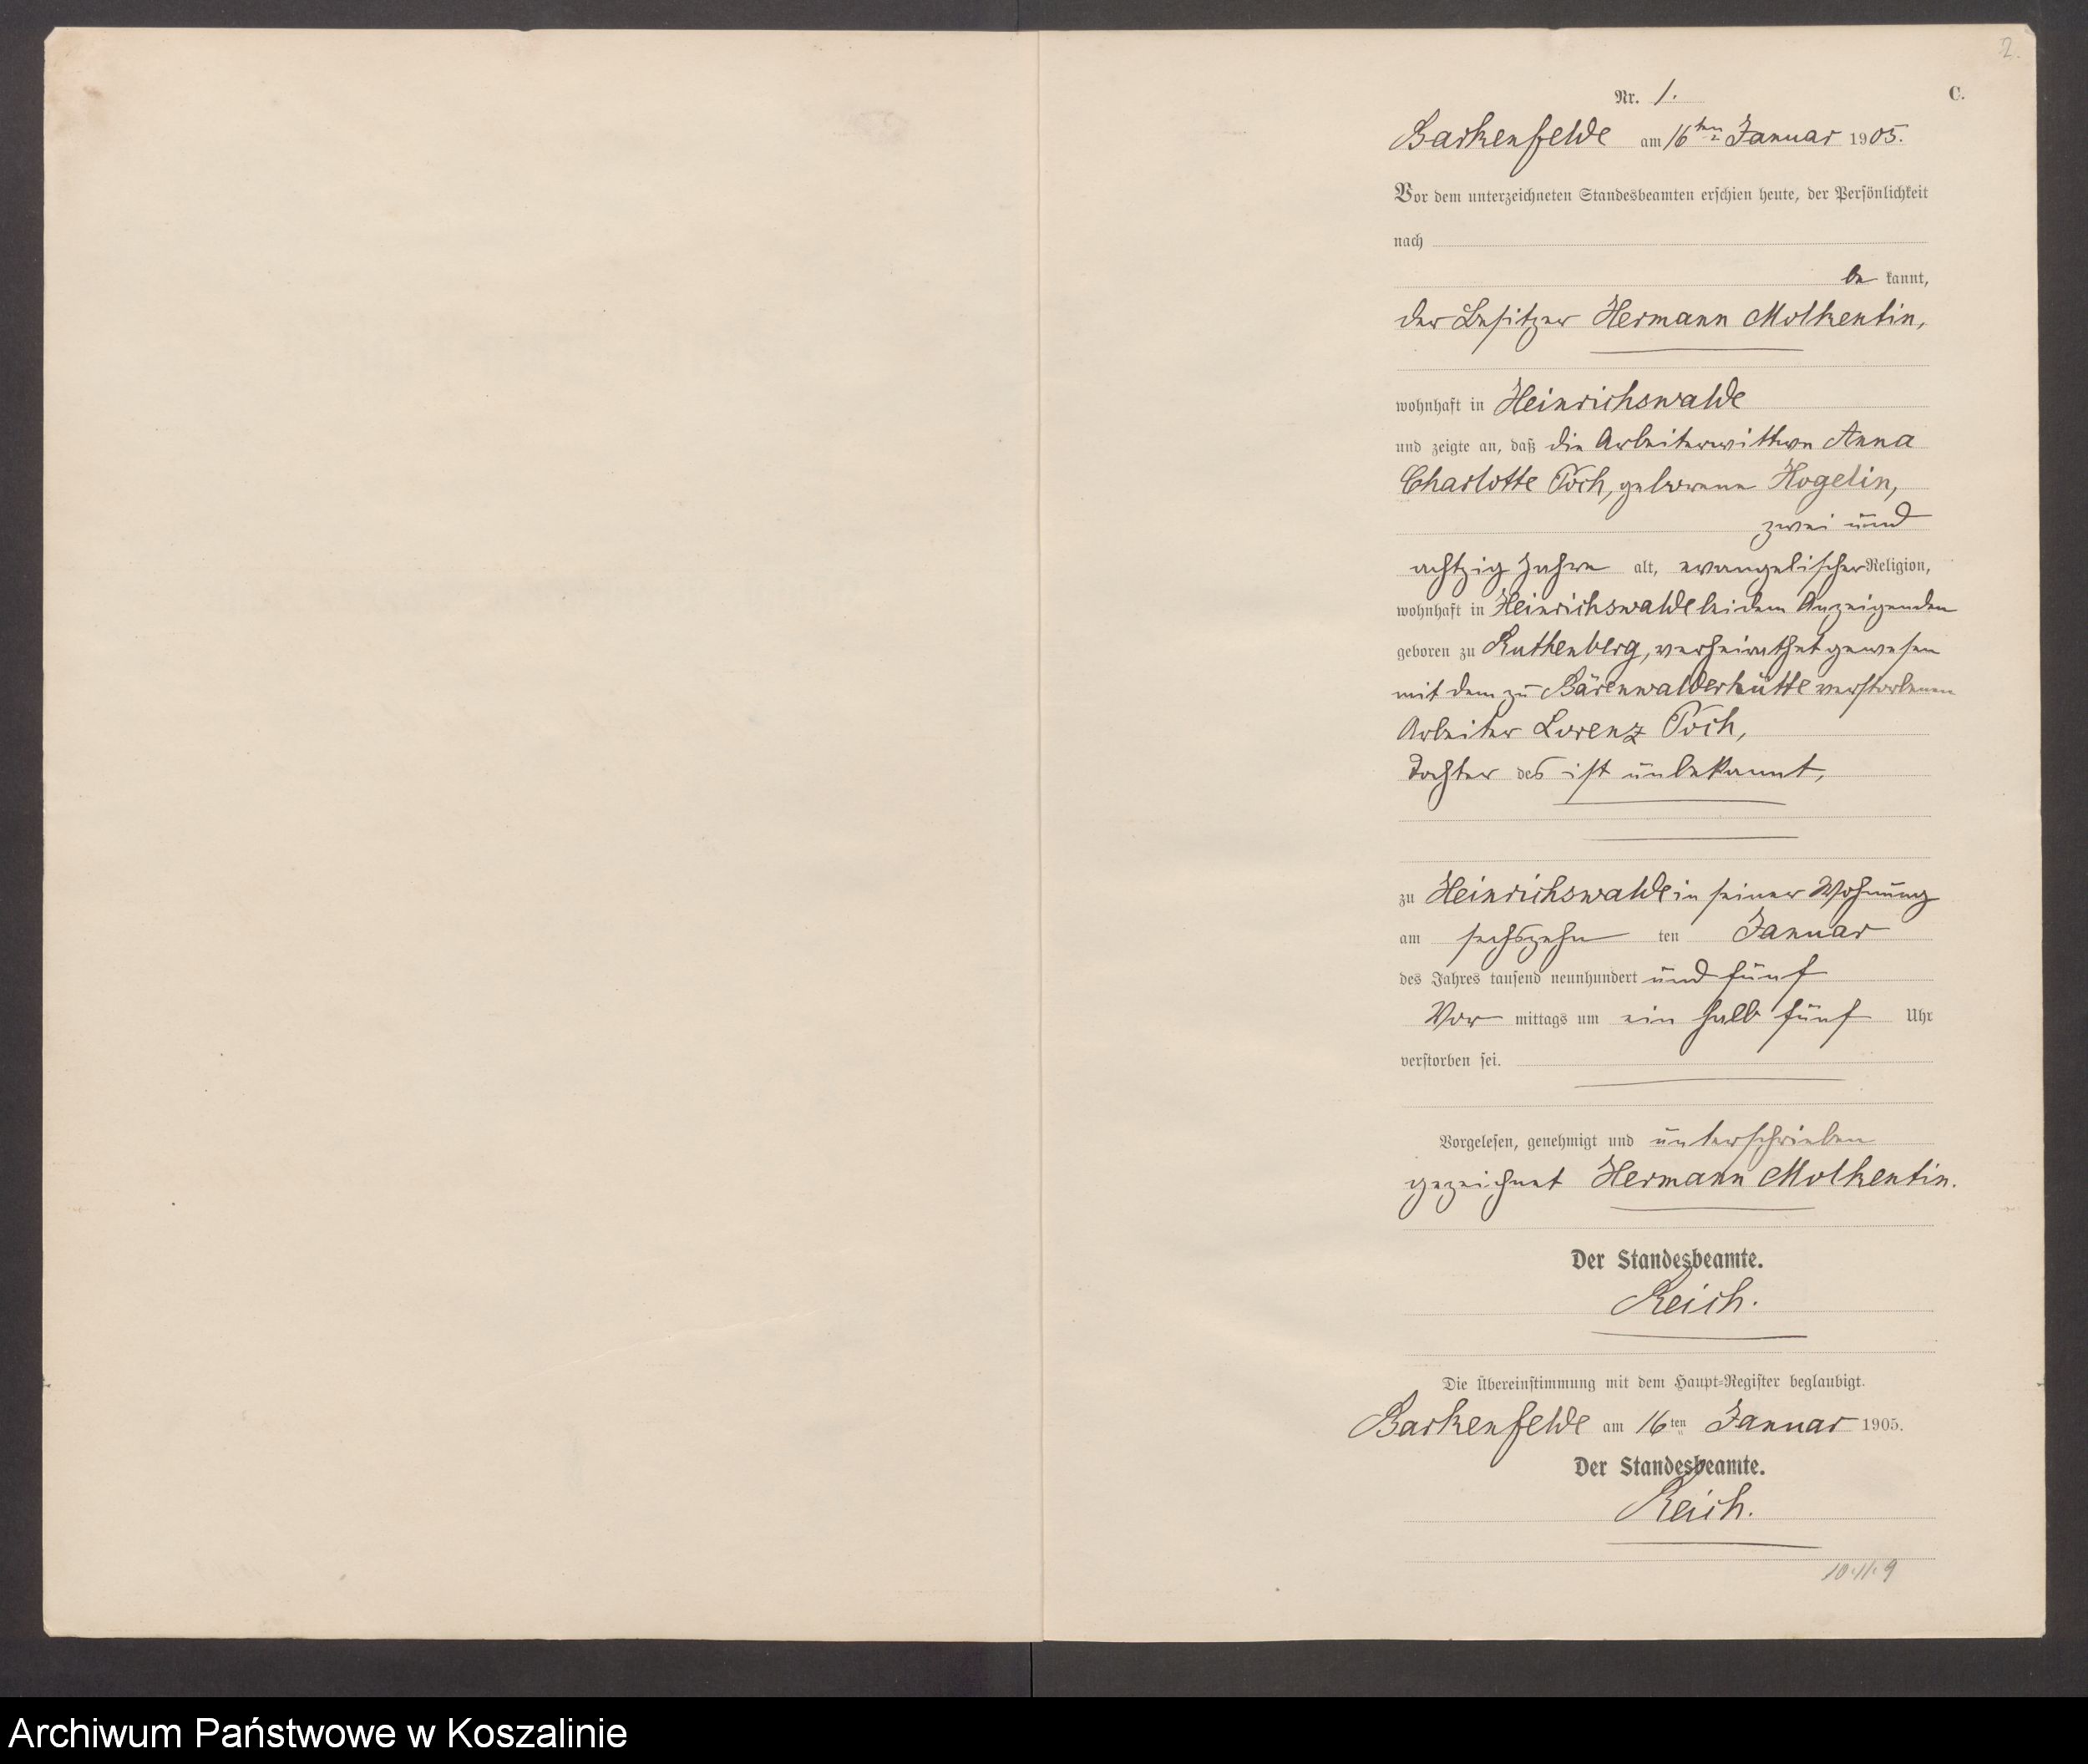 2.
Nr. 1.
C.
Barkenfelde am 16ten Januar 1905.
Vor dem unterzeichneten Standesbeamten erschien heute, der Persönlichkeit
nach
be kannt,
der Besitzer Hermann Molkentin,
wohnhaft in Heinrichswalde
und zeigte an, daß die Arbeiterwittwe Anna
Charlotte Poch, geborene Hogelin,
zwei und
achtzig Jahre alt, evangelischer Religion,
wohnhaft in Heinrichswalde bei dem Anzeigenden
geboren zu Ruthenberg, verheirathet gewesen
mit dem zu Bärenwalderhütte verstorbenen
Arbeiter Lorenz Poch,
Tochter des ist unbekannt,
zu Heinrichswalde in seiner Wohnung
am sechszehn ten Januar
des Jahres tausend neunhundert und fünf
Vor mittags um ein halb fünf Uhr
verstorben sei.
Vorgelesen, genehmigt und unterschrieben
gezeichnet Hermann Molkentin.
Der Standesbeamte.
Reich.
Die Übereinstimmung mit dem Haupt-Register beglaubigt.
Barkenfelde am 16ten Januar 1905.
Der Standesbeamte.
Reich.
Archiwum Państwowe w Koszalinie